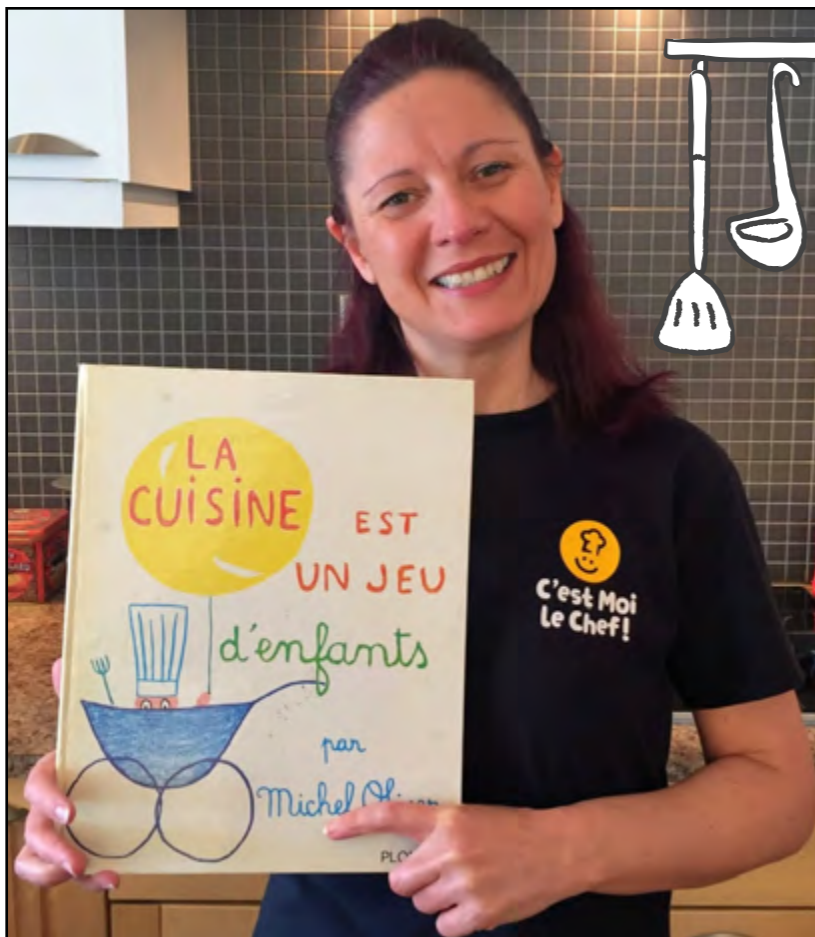 LA
CUISINE
EST
UN JEU
d'enfants
par
Michel
C'est Moi
Le Chef!